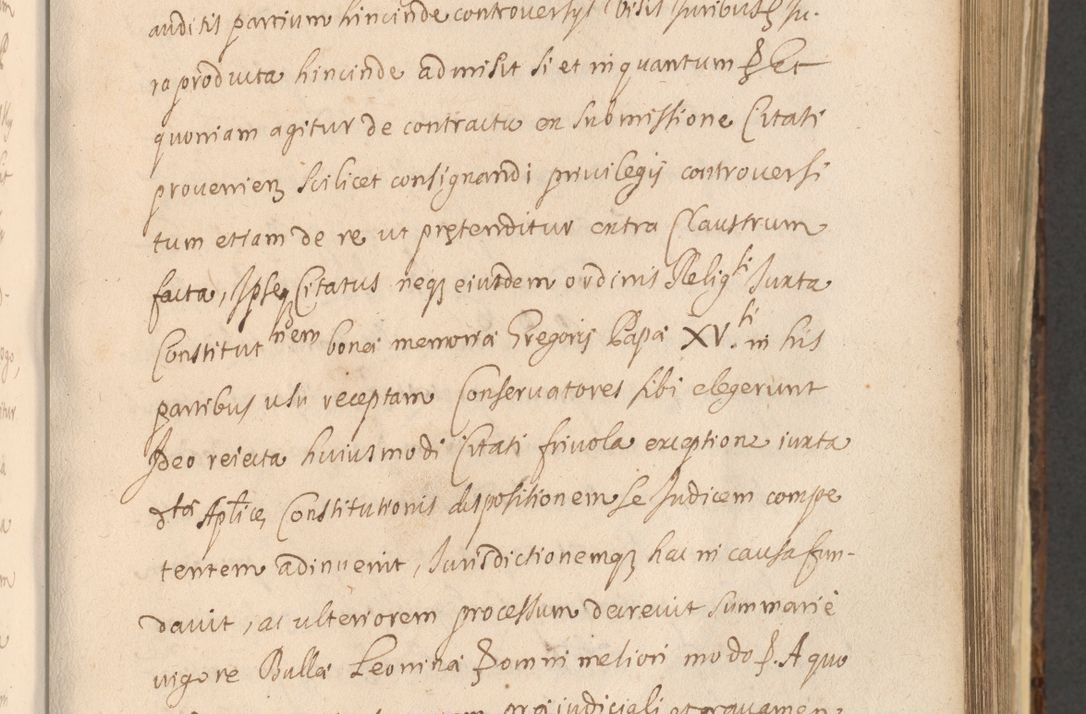 auditis partium hincinde controversijs visis Juribusq Ju-
ra producta hincinde admisit si et in quantum p Et
quoniam agitur de contractu ex submissione Citati
provenienʒ scilicet consignandi privilegij controversi
tum etiam de re ut prętenditur extra Claustrum
facta, Ipseq Citatus neqʒ eiusdem ordinis Religsi Juxta
Constitutnem bonæ memoriæ Gregorij Papæ XV.ti in his
partibus usu receptam Conservatores sibi elegerunt
Ideo reiecta huiusmodi Citati frivola exceptione iuxta
dtæ Aplicæ Constitutionis dispositionem se Judicem compe
tentem adinvenit, Jurisdictionemqʒ hac in causa fun-
davit, ac ulteriorem processum decrevit summarie
vigore Bullæ Leoninæ p omni meliori modo p. A quo
judiciali et gravamen